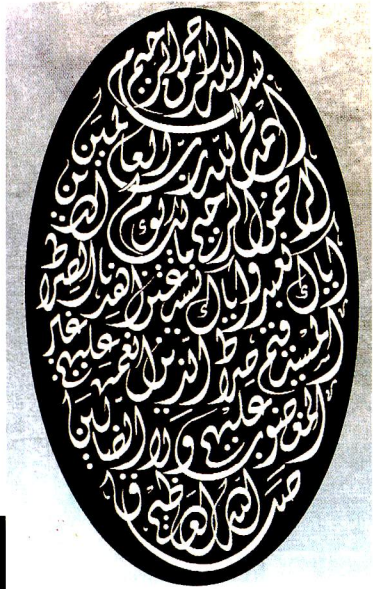 بسم الله الرحمن الرحيم
الحمد لله رب العالمين
الرحمن الرحيم مالك يوم الدين
اياك نعبد واياك نستعين اهدنا الصراط
المستقيم صراط الذين انعمت عليهم غير
المغضوب عليهم ولا الضالين
صدق الله العظيم